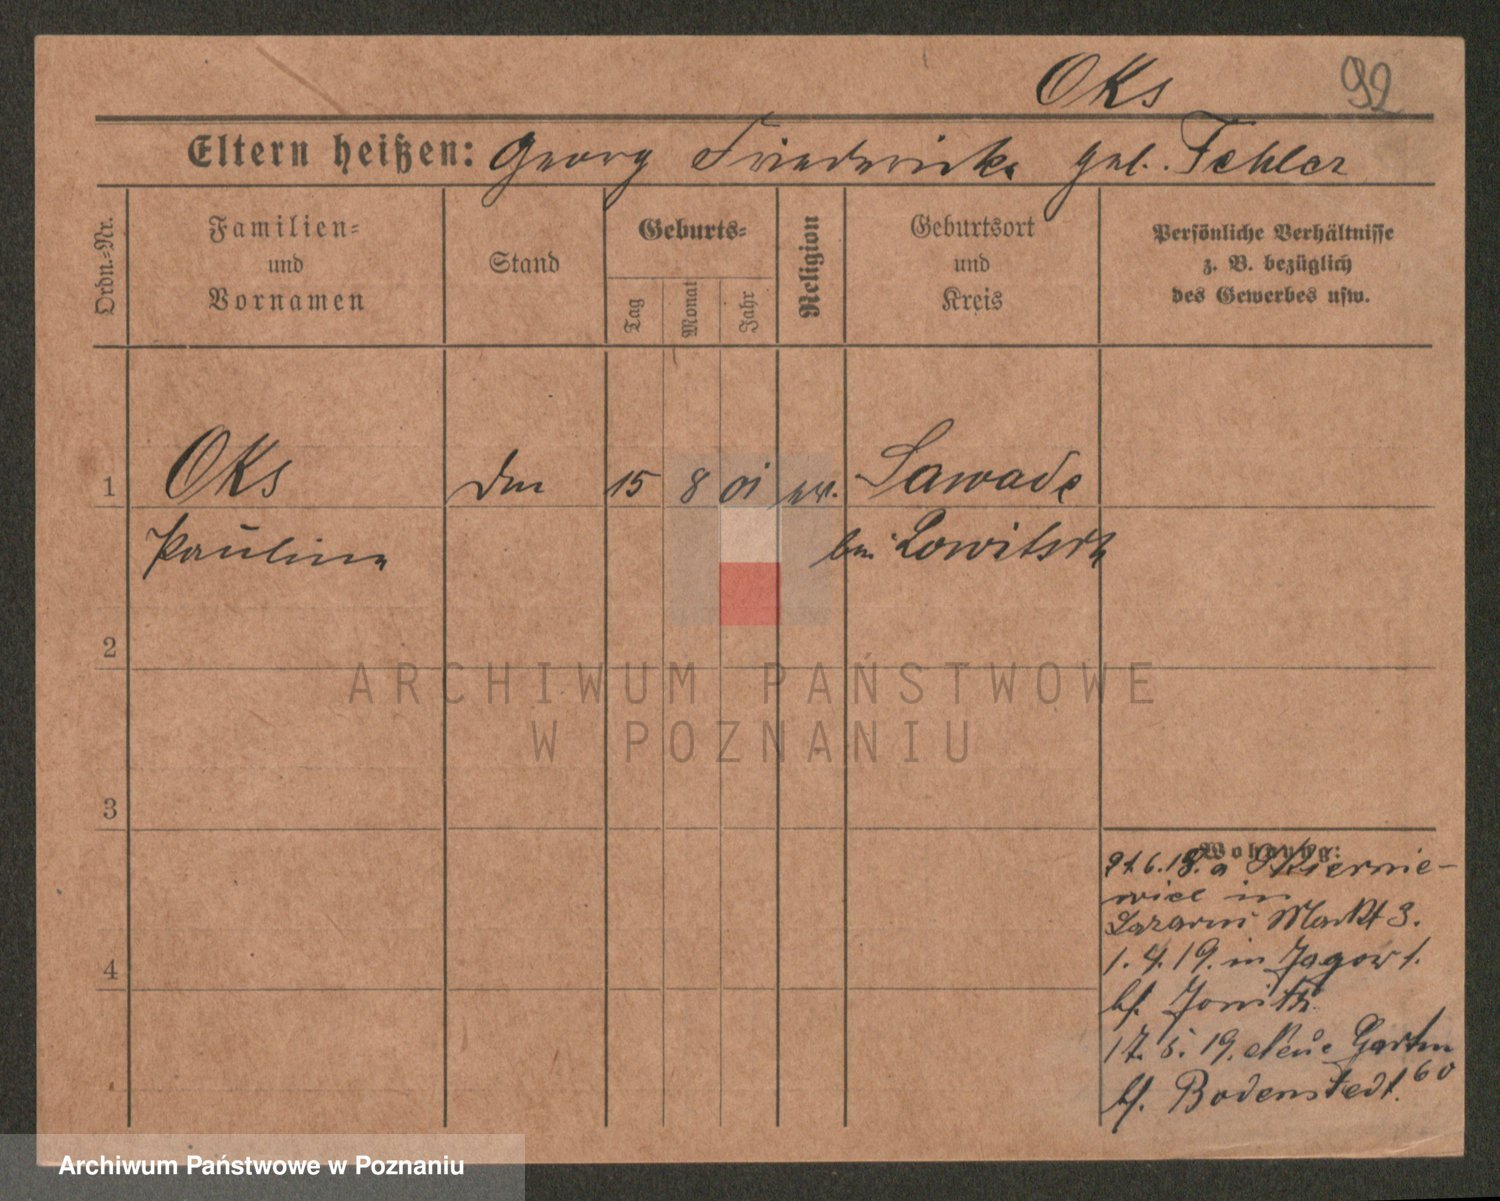 Oks 92
Eltern heißen: Georg Friederike geb. Fehler
Ordn.=Nr.
Familien=
und
Vornamen
Stand
Geburts=
Tag
Monat
Jahr
Religion
Geburtsort
und
Kreis
Persönliche Verhältnisse
z. B. bezüglich
des Gewerbes usw.
1 Oks 15 8 01 ev. Sawade
Pauline bei Lowitsch
2
ARCHIWUM PAŃSTWOWE
W POZNANIU
3
Wohnung:
21.6.18. a Skiernie-
wice in
Lazarus Markt 3.
4
1.4.19. in Jagow 1.
bf.
17.5.19. Neue Garten
bf. Bodenstedt. 60
Archiwum Państwowe w Poznaniu